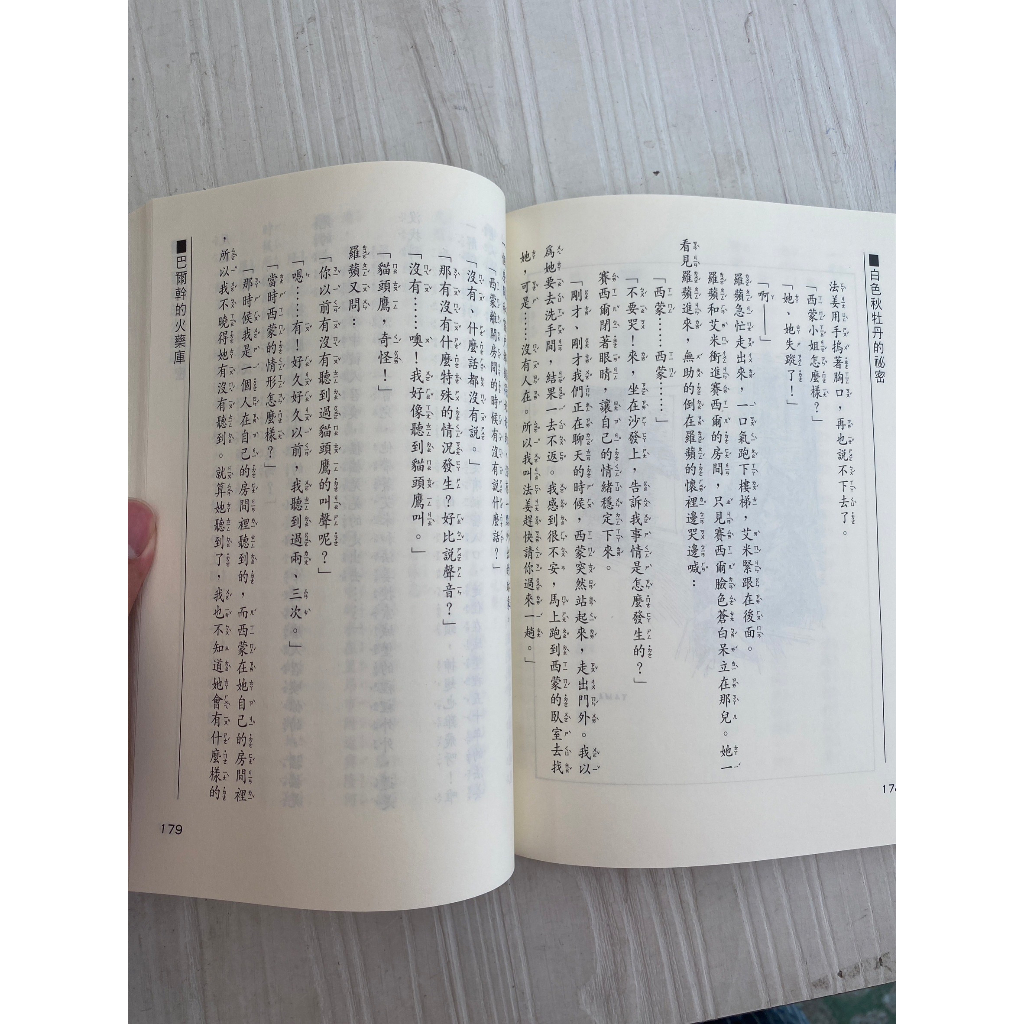 ■白色秋牡丹的祕密
法姜用手摀著胸口，再也說不下去了。
「西蒙小姐怎麼樣？」
「她、她失蹤了！」
「啊——」
羅蘋急忙走出來，一口氣跑下樓梯，艾米緊跟在後面。
羅蘋和艾米衝進賽西爾的房間，只見賽西爾臉色蒼白呆立在那兒。她一
看見羅蘋進來，無助的倒在羅蘋的懷裡邊哭邊喊：
「西蒙……西蒙……
「不要哭！來，坐在沙發上，告訴我事情是怎麼發生的？」
賽西爾閉著眼睛，讓自己的情緒穩定下來。
「剛才、剛才我們正在聊天的時候，西蒙突然站起來，走出門外。我以
為她要去洗手間，結果一去不返。我感到很不安，馬上跑到西蒙的臥室去找
她，可是……沒有人在。所以我叫法姜趕快請你過來一趟。」
「西蒙離開房間的時候有沒有說什麼話？」
「沒有、什麼話都沒有說。」
「那有沒有什麼特殊的情況發生？好比說聲音？」
「沒有……噢！我好像聽到貓頭鷹叫。」
「貓頭鷹，奇怪！」
羅蘋又問：
「你以前有沒有聽到過貓頭鷹的叫聲呢？」
「嗯……有！好久好久以前，我聽到過兩、三次。」
「當時西蒙的情形怎麼樣？」
「那時候我是一個人在自己的房間裡聽到的，而西蒙在她自己的房間裡
，所以我不曉得她有沒有聽到。就算她聽到了，我也不知道她會有什麼樣的
■巴爾幹的火藥庫
179